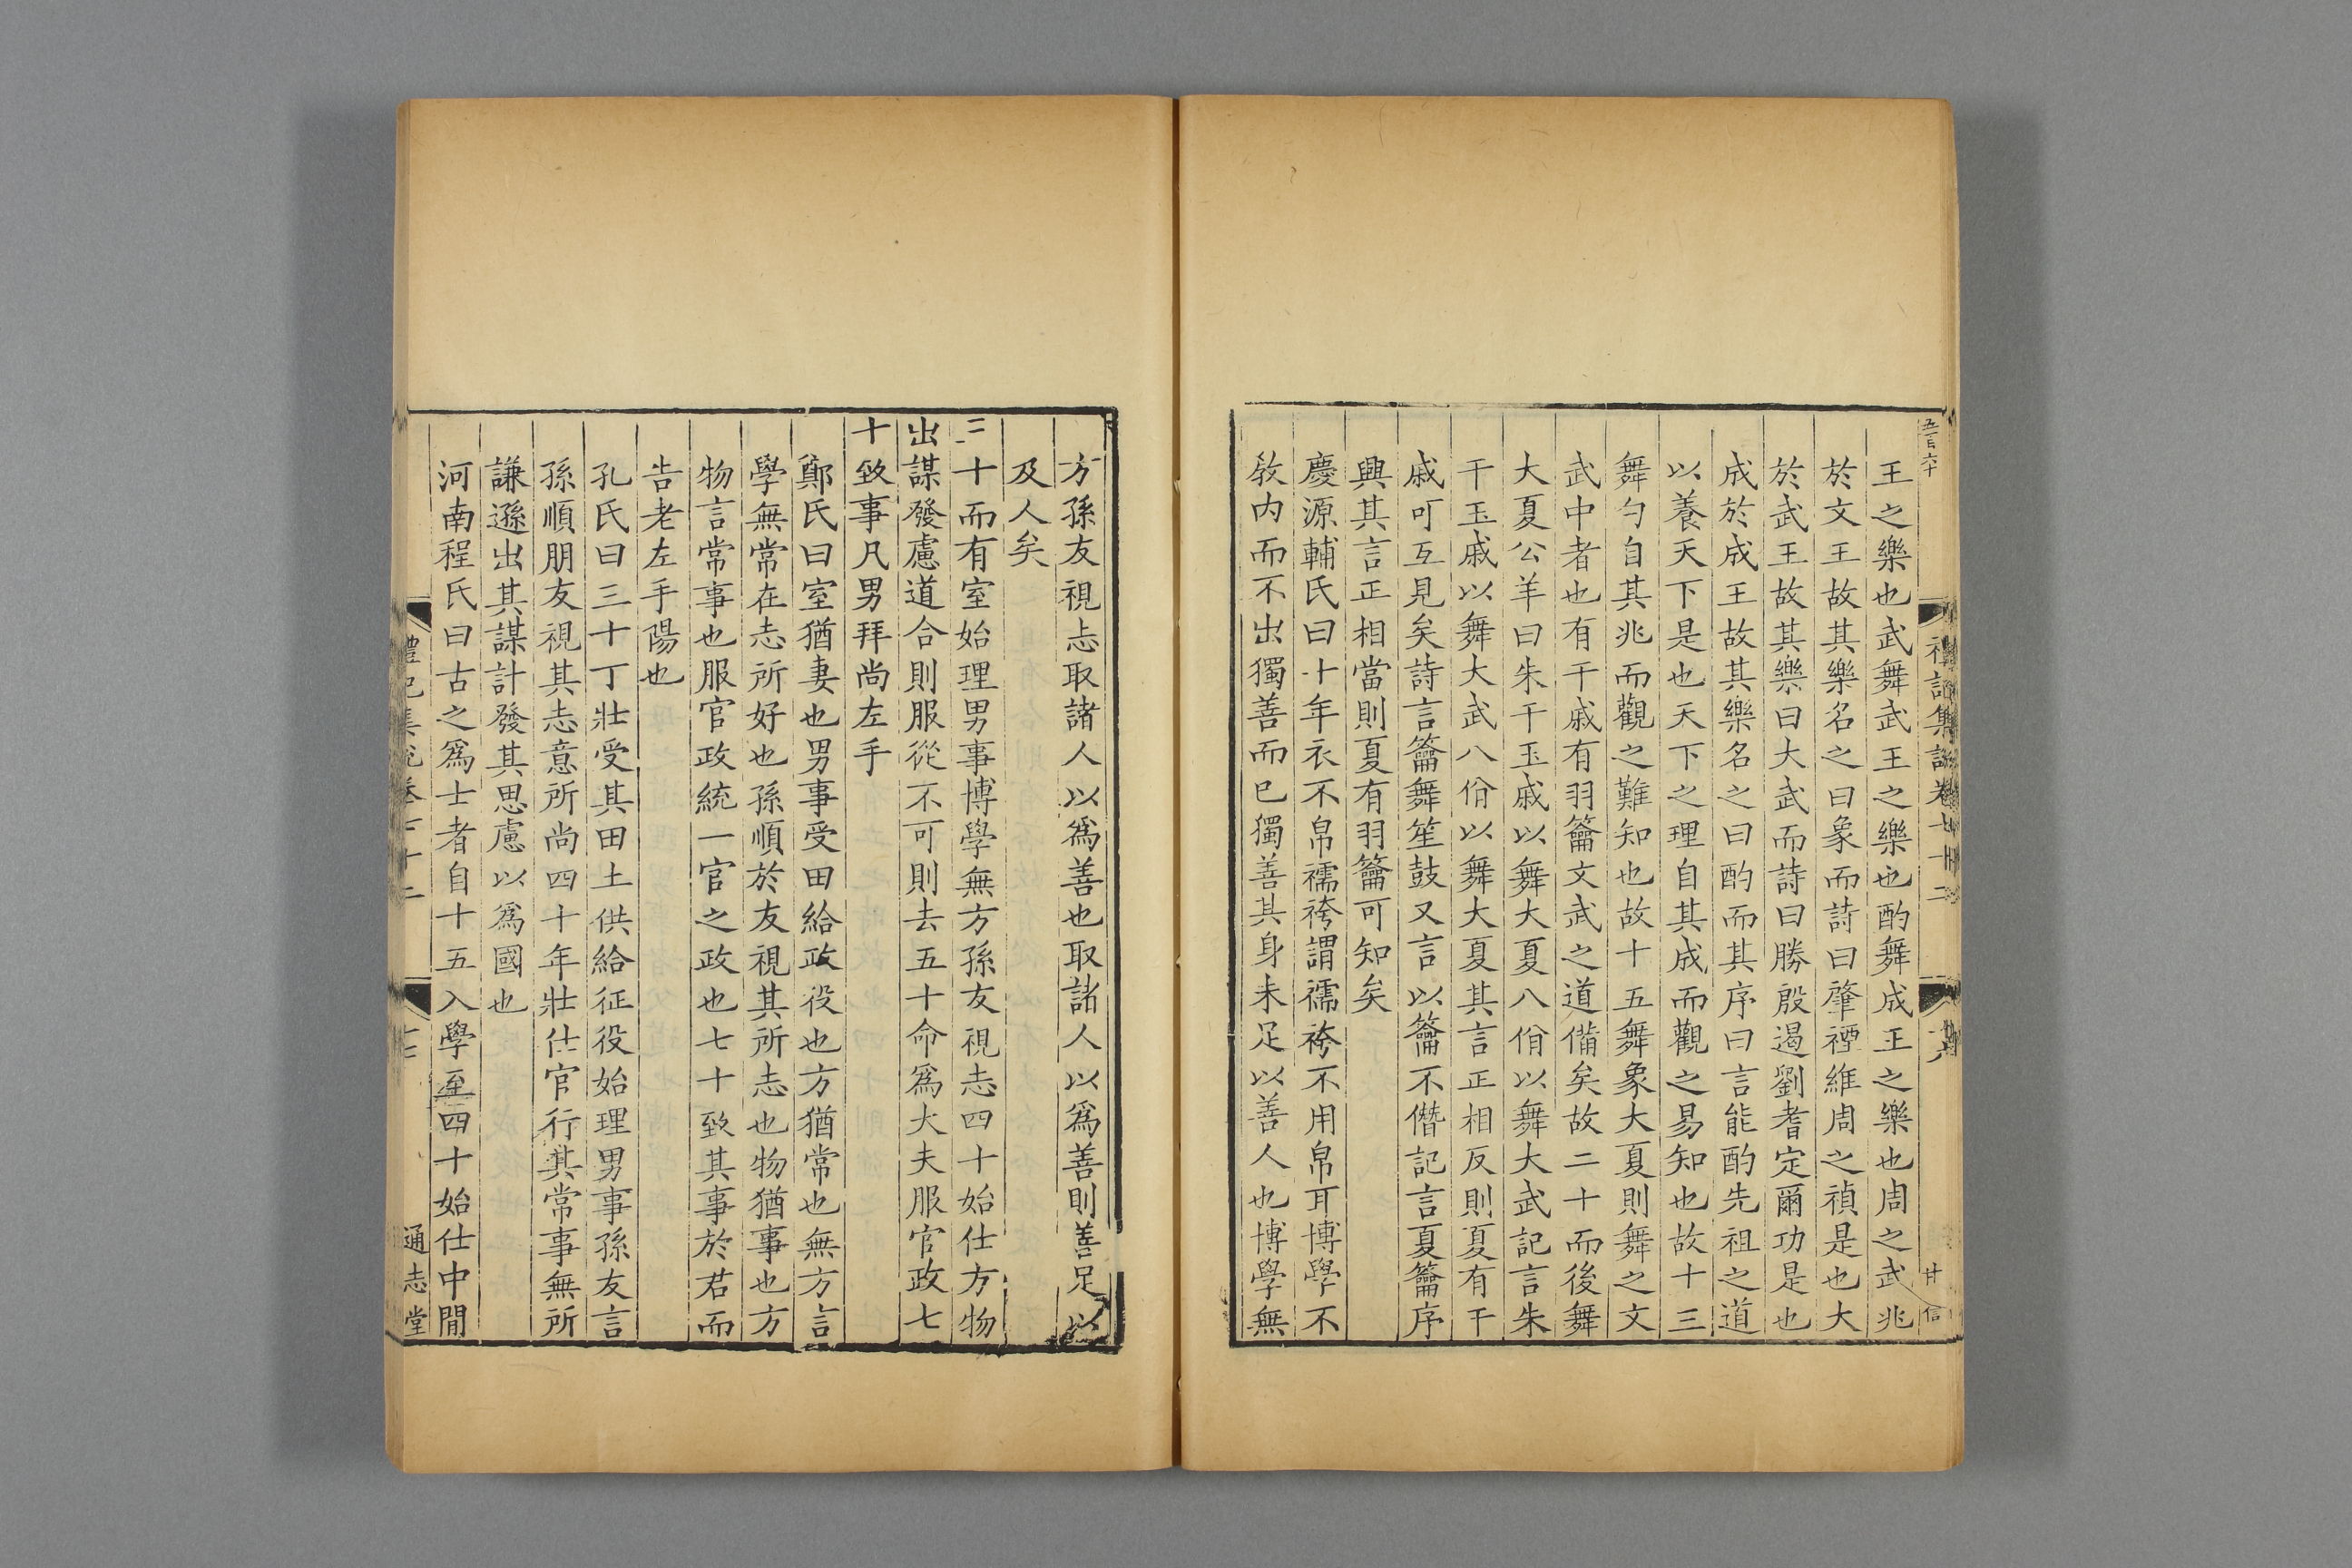 五百六十
禮記集說卷七十二
十六
甘信
王之樂也武舞武王之樂也酌舞成王之樂也周之武兆
於文王故其樂名之曰象而詩曰肇禋維周之禎是也大
於武王故其樂曰大武而詩曰勝殷遏劉耆定爾功是也
成於成王故其樂名之曰酌而其序曰言能酌先祖之道
以養天下是也天下之理自其成而觀之易知也故十三
舞勺自其兆而觀之難知也故十五舞象大夏則舞之文
武中者也有干戚有羽籥文武之道備矣故二十而後舞
大夏公羊曰朱干玉戚以舞大夏八佾以舞大武記言朱
干玉戚以舞大武八佾以舞大夏其言正相反則夏有干
戚可互見矣詩言籥舞笙鼓又言以籥不僭記言夏籥序
興其言正相當則夏有羽籥可知矣
慶源輔氏曰十年衣不帛襦袴謂襦袴不用帛耳博學不
敎內而不出獨善而已獨善其身未足以善人也博學無
方孫友視志取諸人以爲善也取諸人以爲善則善足以
及人矣
三十而有室始理男事博學無方孫友視志四十始仕方物
出謀發慮道合則服從不可則去五十命爲大夫服官政七
十致事凡男拜尚左手
鄭氏曰室猶妻也男事受田給政役也方猶常也無方言
學無常在志所好也孫順於友視其所志也物猶事也方
物言常事也服官政統一官之政也七十致其事於君而
告老左手陽也
孔氏曰三十丁壯受其田土供給征役始理男事孫友言
孫順朋友視其志意所尚四十年壯仕官行其常事無所
謙遜出其謀計發其思慮以爲國也
河南程氏曰古之爲士者自十五入學至四十始仕中間
禮記集說卷七十二
十七
通志堂